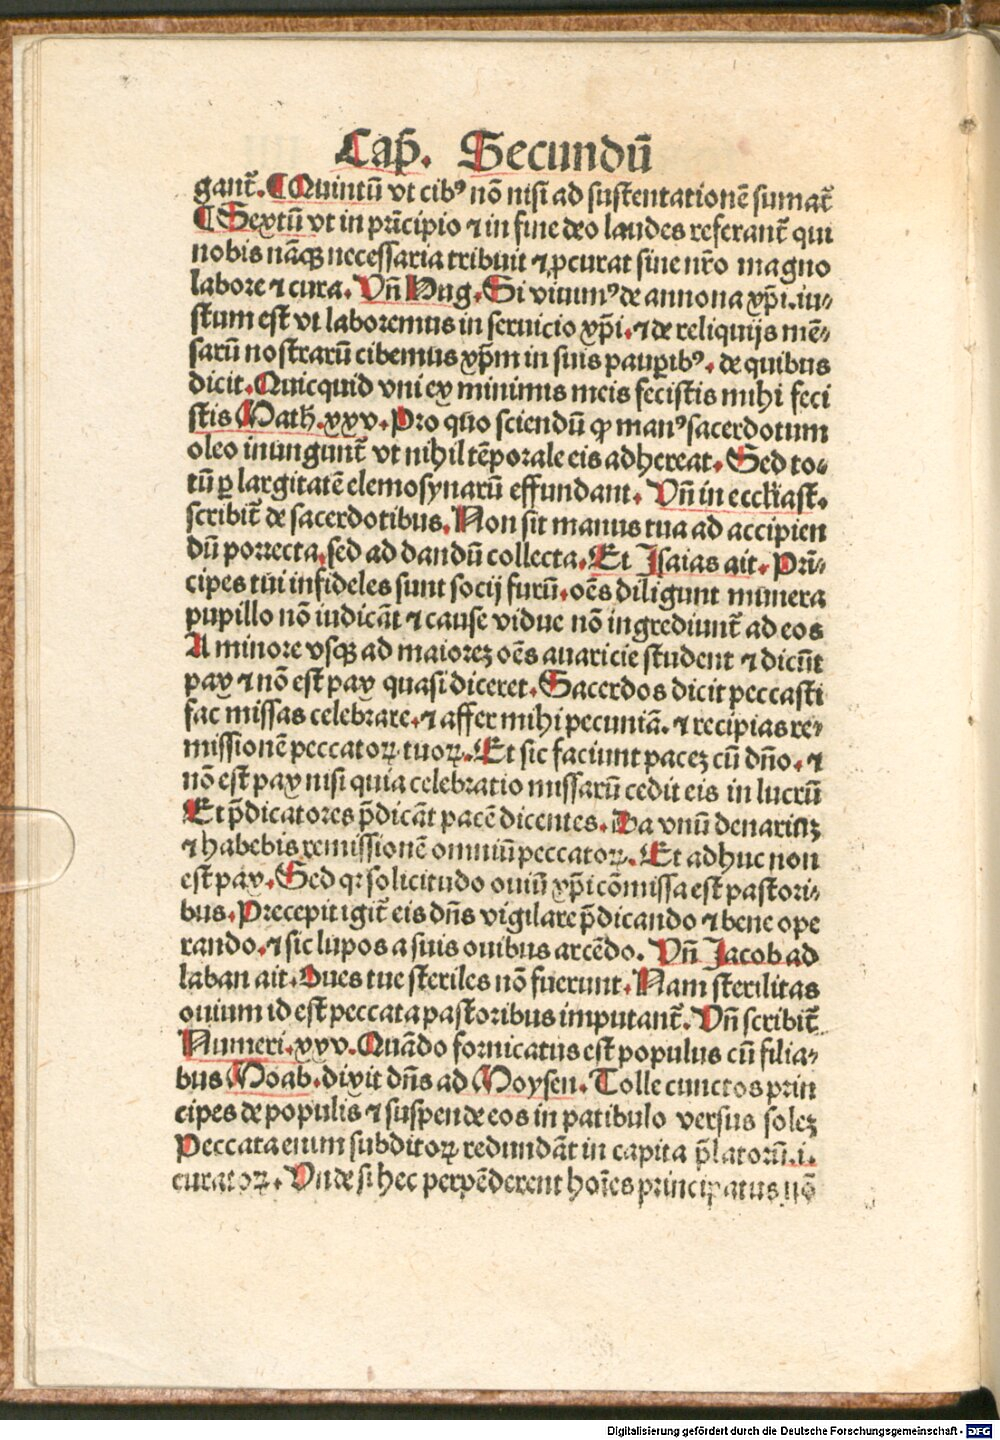 Cap̄. Secundū
gant̄. ¶ Quintū vt cibꝰ nō nisi ad sustentationē sumat̄
¶ Sextū vt in prīcipio ⁊ in fine deo laudes referant̄ qui
nobis nāqꝫ necessaria tribuit ⁊ ꝓcurat sine nr̄o magno
labore ⁊ cura. Vn̄ Hug. Si viuimꝰ de annona xp̄i. iu⸗
stum est vt laboremus in seruicio xp̄i. ⁊ de reliquijs mē⸗
sarū nostrarū cibemus xp̄m in suis pauꝑibꝰ. de quibus
dicit. Quicquid vni ex minimis meis fecistis mihi feci
stis Math. xxv. Pro quo sciendū ꝙ manꝰ sacerdotum
oleo inungunt̄ vt nihil tēporale eis adhereat. Sed to⸗
tū ꝑ largitatē elemosynarū effundant. Vn̄ in eccl̄iast.
scribit̄ de sacerdotibus. Non sit manus tua ad accipien
dū porrecta. sed ad dandū collecta. Et Isaias ait. Prī⸗
cipes tui infideles sunt socij furū. oēs diligunt munera
pupillo nō iudicāt ⁊ cause vidue nō ingrediunt̄ ad eos
A minore vsqꝫ ad maiorez oēs auaricie student ⁊ dicūt
pax ⁊ nō est pax quasi diceret. Sacerdos dicit peccasti
fac missas celebrare. ⁊ affer mihi pecuniā. ⁊ recipias re⸗
missionē peccatoꝝ tuoꝝ. Et sic faciunt pacez cū dn̄o. ⁊
nō est pax nisi quia celebratio missarū cedit eis in lucrū
Et p̄dicatores p̄dicāt pacē dicentes. Da vnū denariūz
⁊ habebis remissionē omniū peccatoꝝ. Et adhuc non
est pax. Sed qꝛ solicitudo ouiū xp̄i cōmissa est pastori⸗
bus. Precepit igit̄ eis dn̄s vigilare p̄dicando ⁊ bene ope
rando. ⁊ sic lupos a suis ouibus arcēdo. Vn̄ Jacob ad
laban ait. Oues tue steriles nō fuerunt. Nam sterilitas
ouium id est peccata pastoribus imputant̄. Vn̄ scribit̄
Numeri. xxv. Quādo fornicatus est populus cū filia⸗
bus Moab. dixit dn̄s ad Moysen. Tolle cunctos prin
cipes de populis ⁊ suspende eos in patibulo versus solez
Peccata enim subditoꝝ redundāt in capita p̄latorū. i.
curatoꝝ. Vnde si hec perpēderent hoīes principatus nō
Digitalisierung gefördert durch die Deutsche Forschungsgemeinschaft - DFG